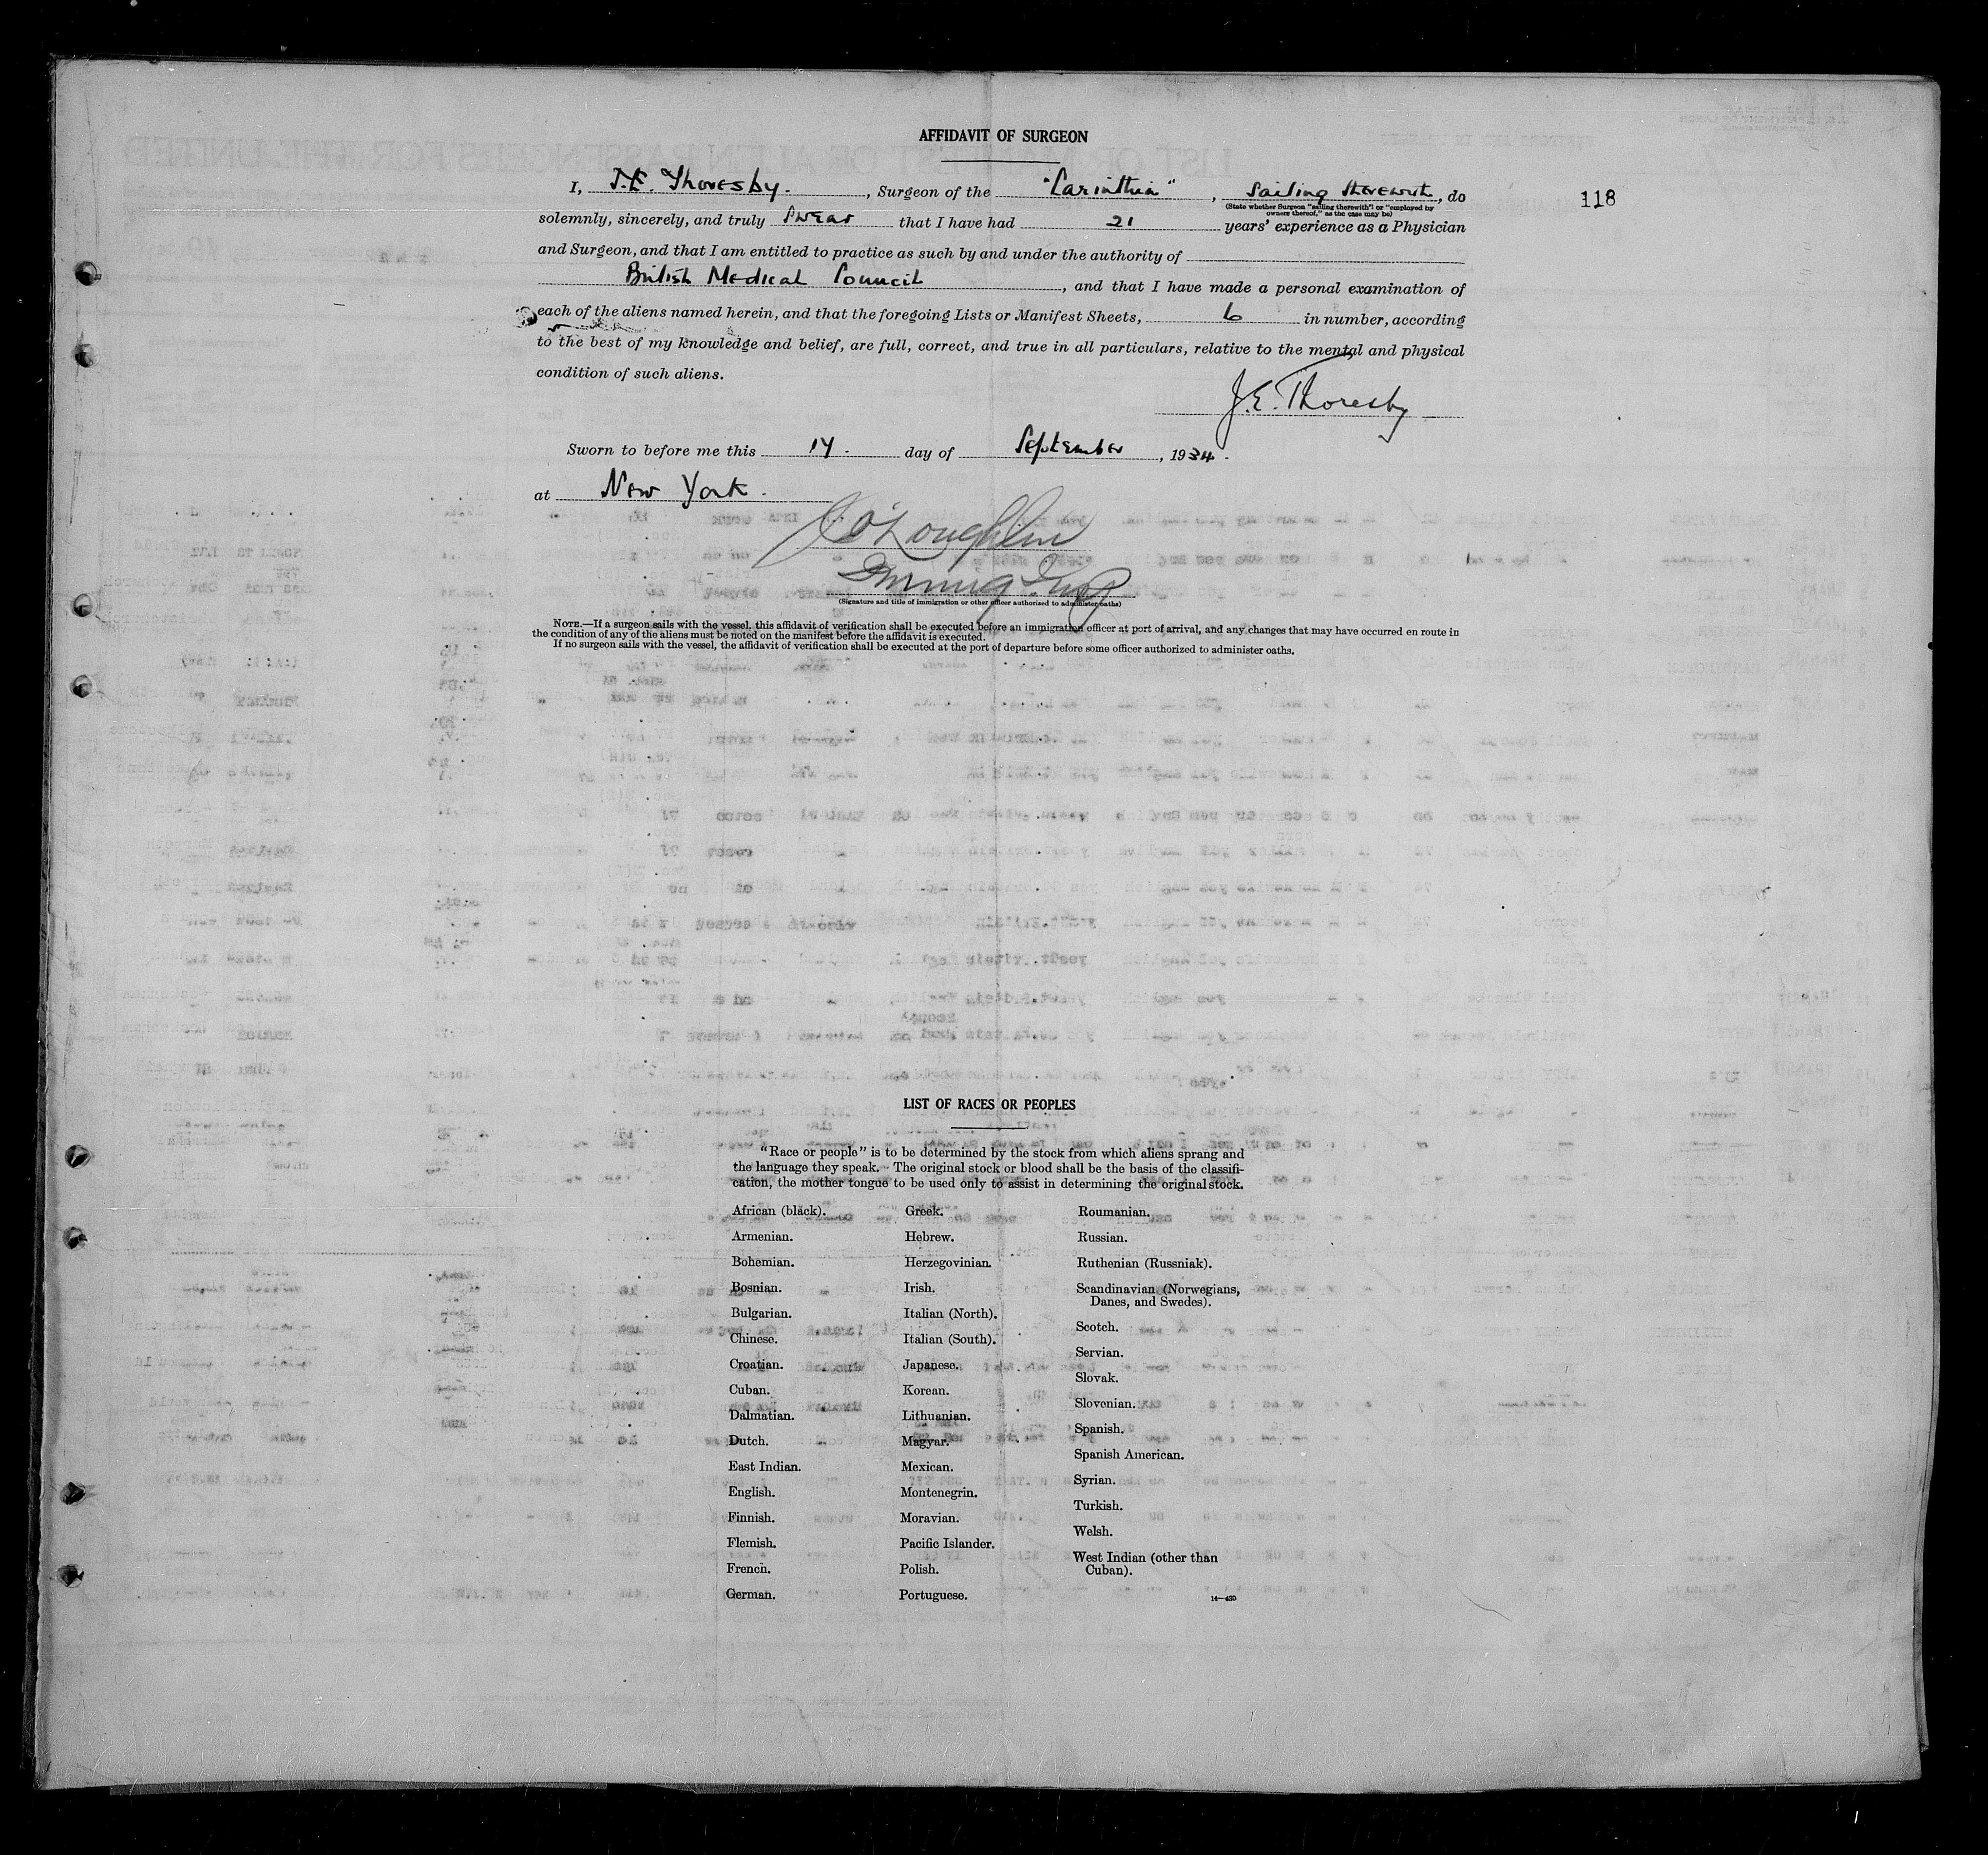 AFFIDAVIT OF SURGEON
I, J.E. Thoresby., Surgeon of the "Carinthia", Sailing therewith, do
118
(State whether Surgeon "sailing therewith" or "employed by
owners thereof," as the case may be)
solemnly, sincerely, and truly swear that I have had 21 years' experience as a Physician
and Surgeon, and that I am entitled to practice as such by and under the authority of
British Medical Council, and that I have made a personal examination of
each of the aliens named herein, and that the foregoing Lists or Manifest Sheets, 6 in number, according
to the best of my knowledge and belief, are full, correct, and true in all particulars, relative to the mental and physical
condition of such aliens.
J.E. Thoresby
Sworn to before me this 14. day of September, 1934.
at New York.
J O'Loughlin
Immig. Insp
(Signature and title of immigration or other officer authorized to administer oaths)
NOTE.—If a surgeon sails with the vessel, this affidavit of verification shall be executed before an immigration officer at port of arrival, and any changes that may have occurred en route in
the condition of any of the aliens must be noted on the manifest before the affidavit is executed.
If no surgeon sails with the vessel, the affidavit of verification shall be executed at the port of departure before some officer authorized to administer oaths.
LIST OF RACES OR PEOPLES
"Race or people" is to be determined by the stock from which aliens sprang and
the language they speak. The original stock or blood shall be the basis of the classifi-
cation, the mother tongue to be used only to assist in determining the original stock.
African (black).
Armenian.
Bohemian.
Bosnian.
Bulgarian.
Chinese.
Croatian.
Cuban.
Dalmatian.
Dutch.
East Indian.
English.
Finnish.
Flemish.
French.
German.
Greek.
Hebrew.
Herzegovinian.
Irish.
Italian (North).
Italian (South).
Japanese.
Korean.
Lithuanian.
Magyar.
Mexican.
Montenegrin.
Moravian.
Pacific Islander.
Polish.
Portuguese.
Roumanian.
Russian.
Ruthenian (Russniak).
Scandinavian (Norwegians,
Danes, and Swedes).
Scotch.
Servian.
Slovak.
Slovenian.
Spanish.
Spanish American.
Syrian.
Turkish.
Welsh.
West Indian (other than
Cuban).
14—430